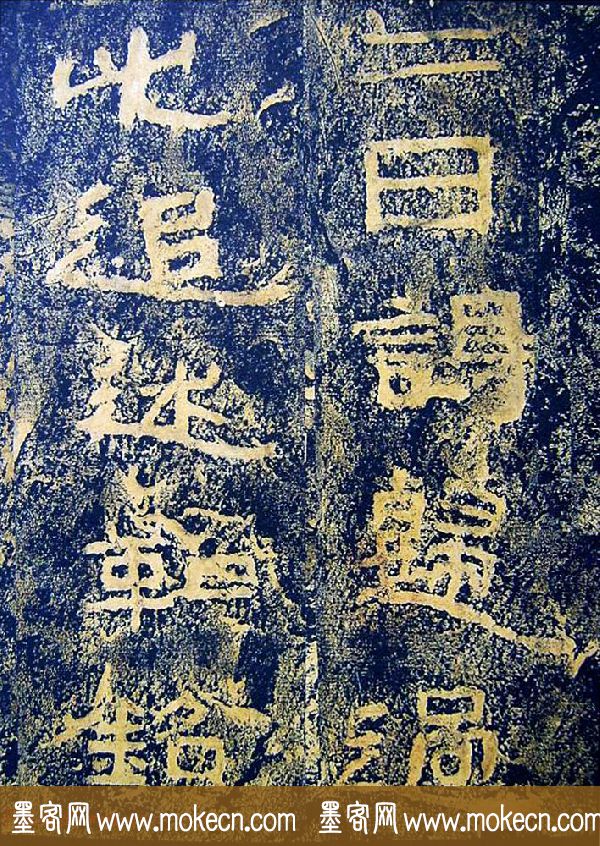 二日謁歸過
此追述勒銘
墨客网 www.mokecn.com 墨客网 www.mokecn.com